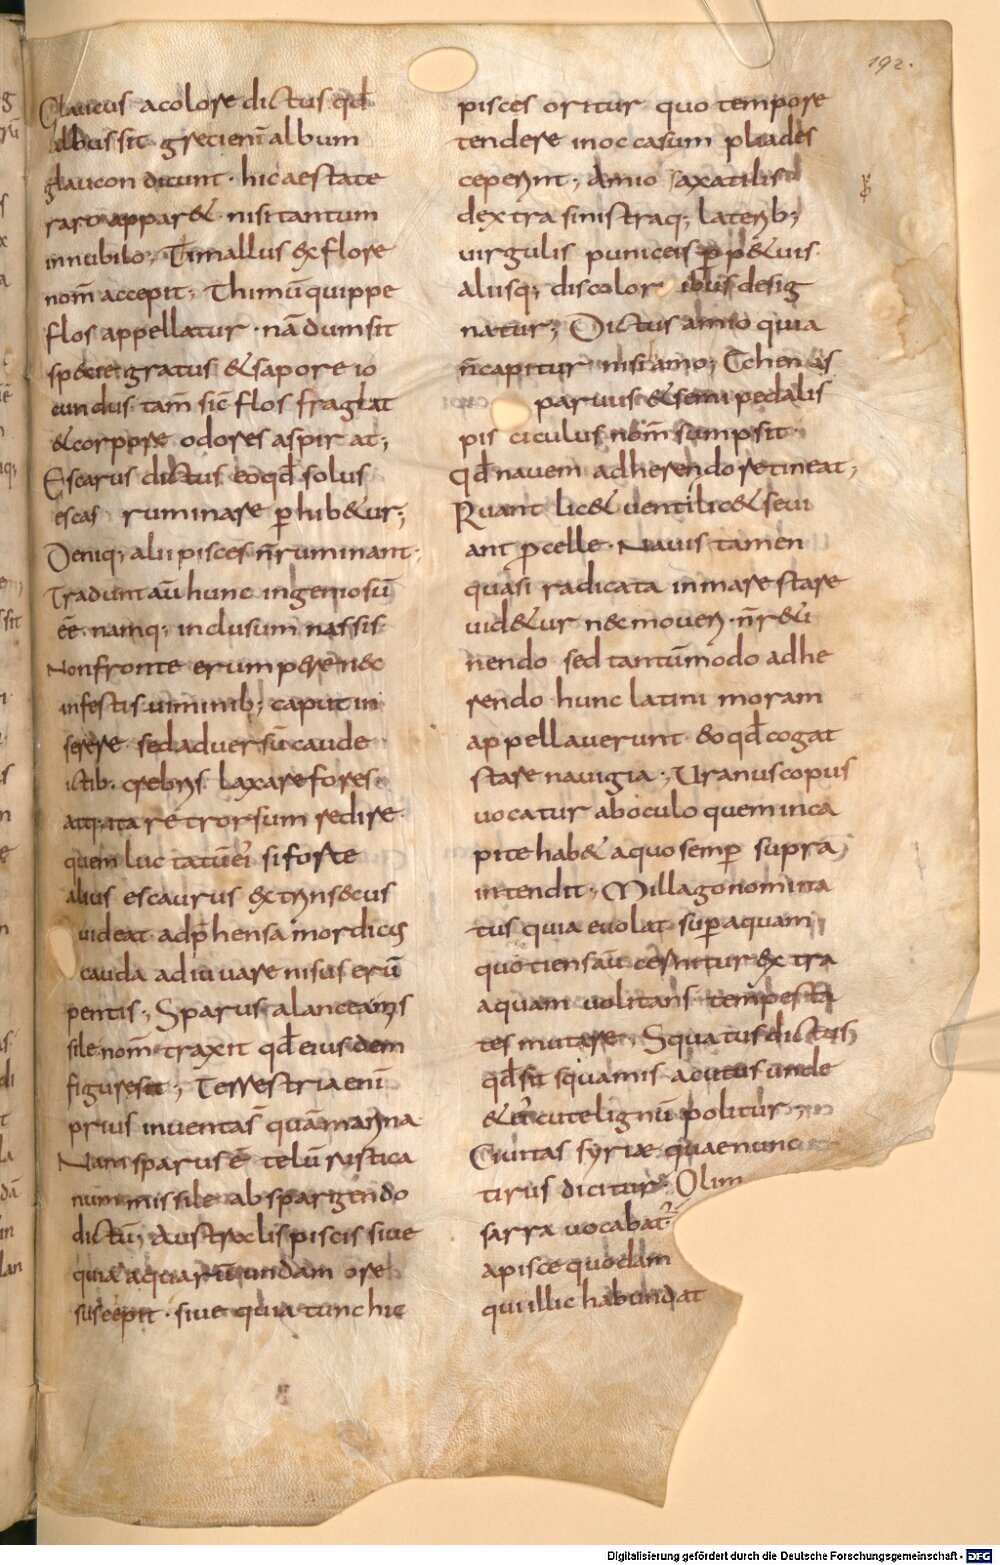 192.
Glaucus a colore dictus qđ
albus sit. greci enī album
glaucon dicunt. hic aestate
raro apparet. nisi tantum
in nubilo; Timallus ex flore
nom̄ accepit; Thimū quippe
flos appellatur. nā dum sit
specie gratus et sapore io
cundus. tam̄ sic̄ flos fraglat
et corpore odores aspirat;
Escarus dictus eo qđ solus
escas ruminare ꝑhibetur;
Deniq; alii pisces n̄ ruminant.
Tradunt aū hunc ingeniosū
ēē. namq; inclusum nassis
Non fronte erumpere nec
infestis uiminib; caput in
serere. sed aduersū caude
ictib. crebris laxare fores.
atq; ita retrorsum redire.
quem luctatū ei si forte
alius escaurus extrinsecus
uideat adp̄hensa mordicus
cauda adiuuare nisus erū
pentis; Sparus a lancea mis
sile nom̄ traxit qđ eiusdem
figure sit; Terrestria enī
prius inuenta s̄ quā marina
Nam sparus ē telū rustica
num missile ab spargendo
dictū; Australis piscis siue
quia aquarū undam ore
suscepit. siue quia tunc hic
pisces oritur quo tempore
tendere in occasum pliades
ceperint; Amio saxatilis
dextra sinistraq; laterib;
uirgulis puniceis ꝑpetuis
aliisq; discoloribus desig
natur; Dictus amio quia
n̄ capitur nisi amo; Echenais
paruus et semipedalis
pisciculus nom̄ sumpsit
qđ nauem adherendo retineat;
Ruant licet uenti licet seui
ant ꝓcelle. Nauis tamen
quasi radicata in mare stare
uidetur nec moueri. n̄ reti
nendo sed tantūmodo adhe
rendo hunc latini moram
appellauerunt eo qđ cogat
stare nauigia; Uranuscopus
uocatur ab oculo quem in ca
pite habet a quo semꝑ supra
intendit; Millago nomina
tus quia euolat suꝑ aquam
quotiens aū cernitur extra
aquam uolitans tempesta
tes mutare; Squatus dictus
qđ sit squamis acutus unde
et ei cute lignū politur;
Ciuitas syriae quae nunc
tirus dicitur. Olim
sarra uocabat̃
a pisce quodam
qui illic habundat
Digitalisierung gefördert durch die Deutsche Forschungsgemeinschaft - DFG